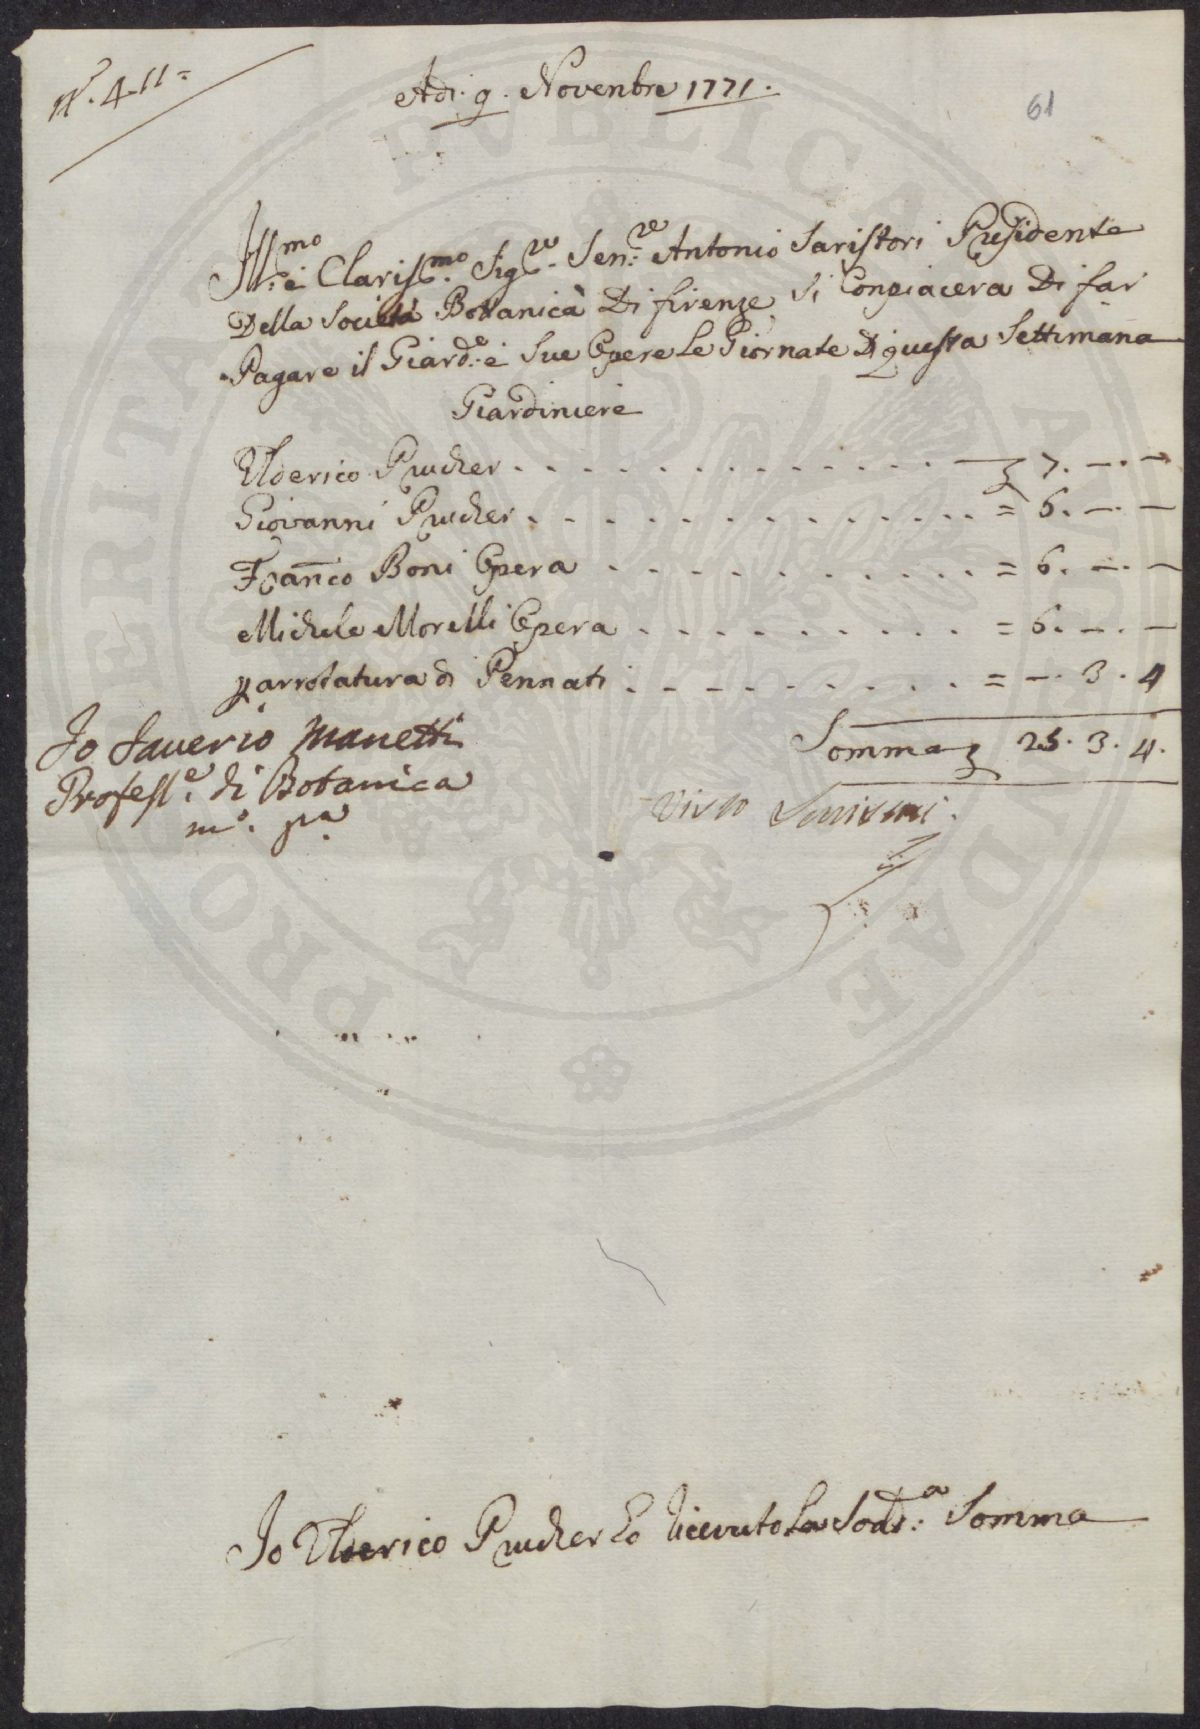 N.° 411=
Adi. 9. Novembre 1771.
61
Ill:mo e Clariss:mo Sig:re Sen:re Antonio Saristori Presidente
Della Società Botanica Di firenze Si Conpiacera Di far
Pagare il Giard:e e Sue Opere Le Giornate Di questa Settimana
Giardiniere
Ulderico Prucher . . . . . . . . . . . . . 7. —. —
Giovanni Prucher . . . . . . . . . . . . . = 6. —. —
Franco Boni Opera . . . . . . . . . . . = 6. —. —
Michele Morelli Opera . . . . . . . . . . = 6. —. —
p arrotatura di Pennati . . . . . . . . . . = —. 3. 4
Somma 25. 3. 4.
Io Saverio Manetti
Profess:e di Botanica
m:o pa
Visto
Io Ulderico Prucher ho ricevuto La Sodd:a Somma
PROSPERITATI PVBLICAE AVGENDAE